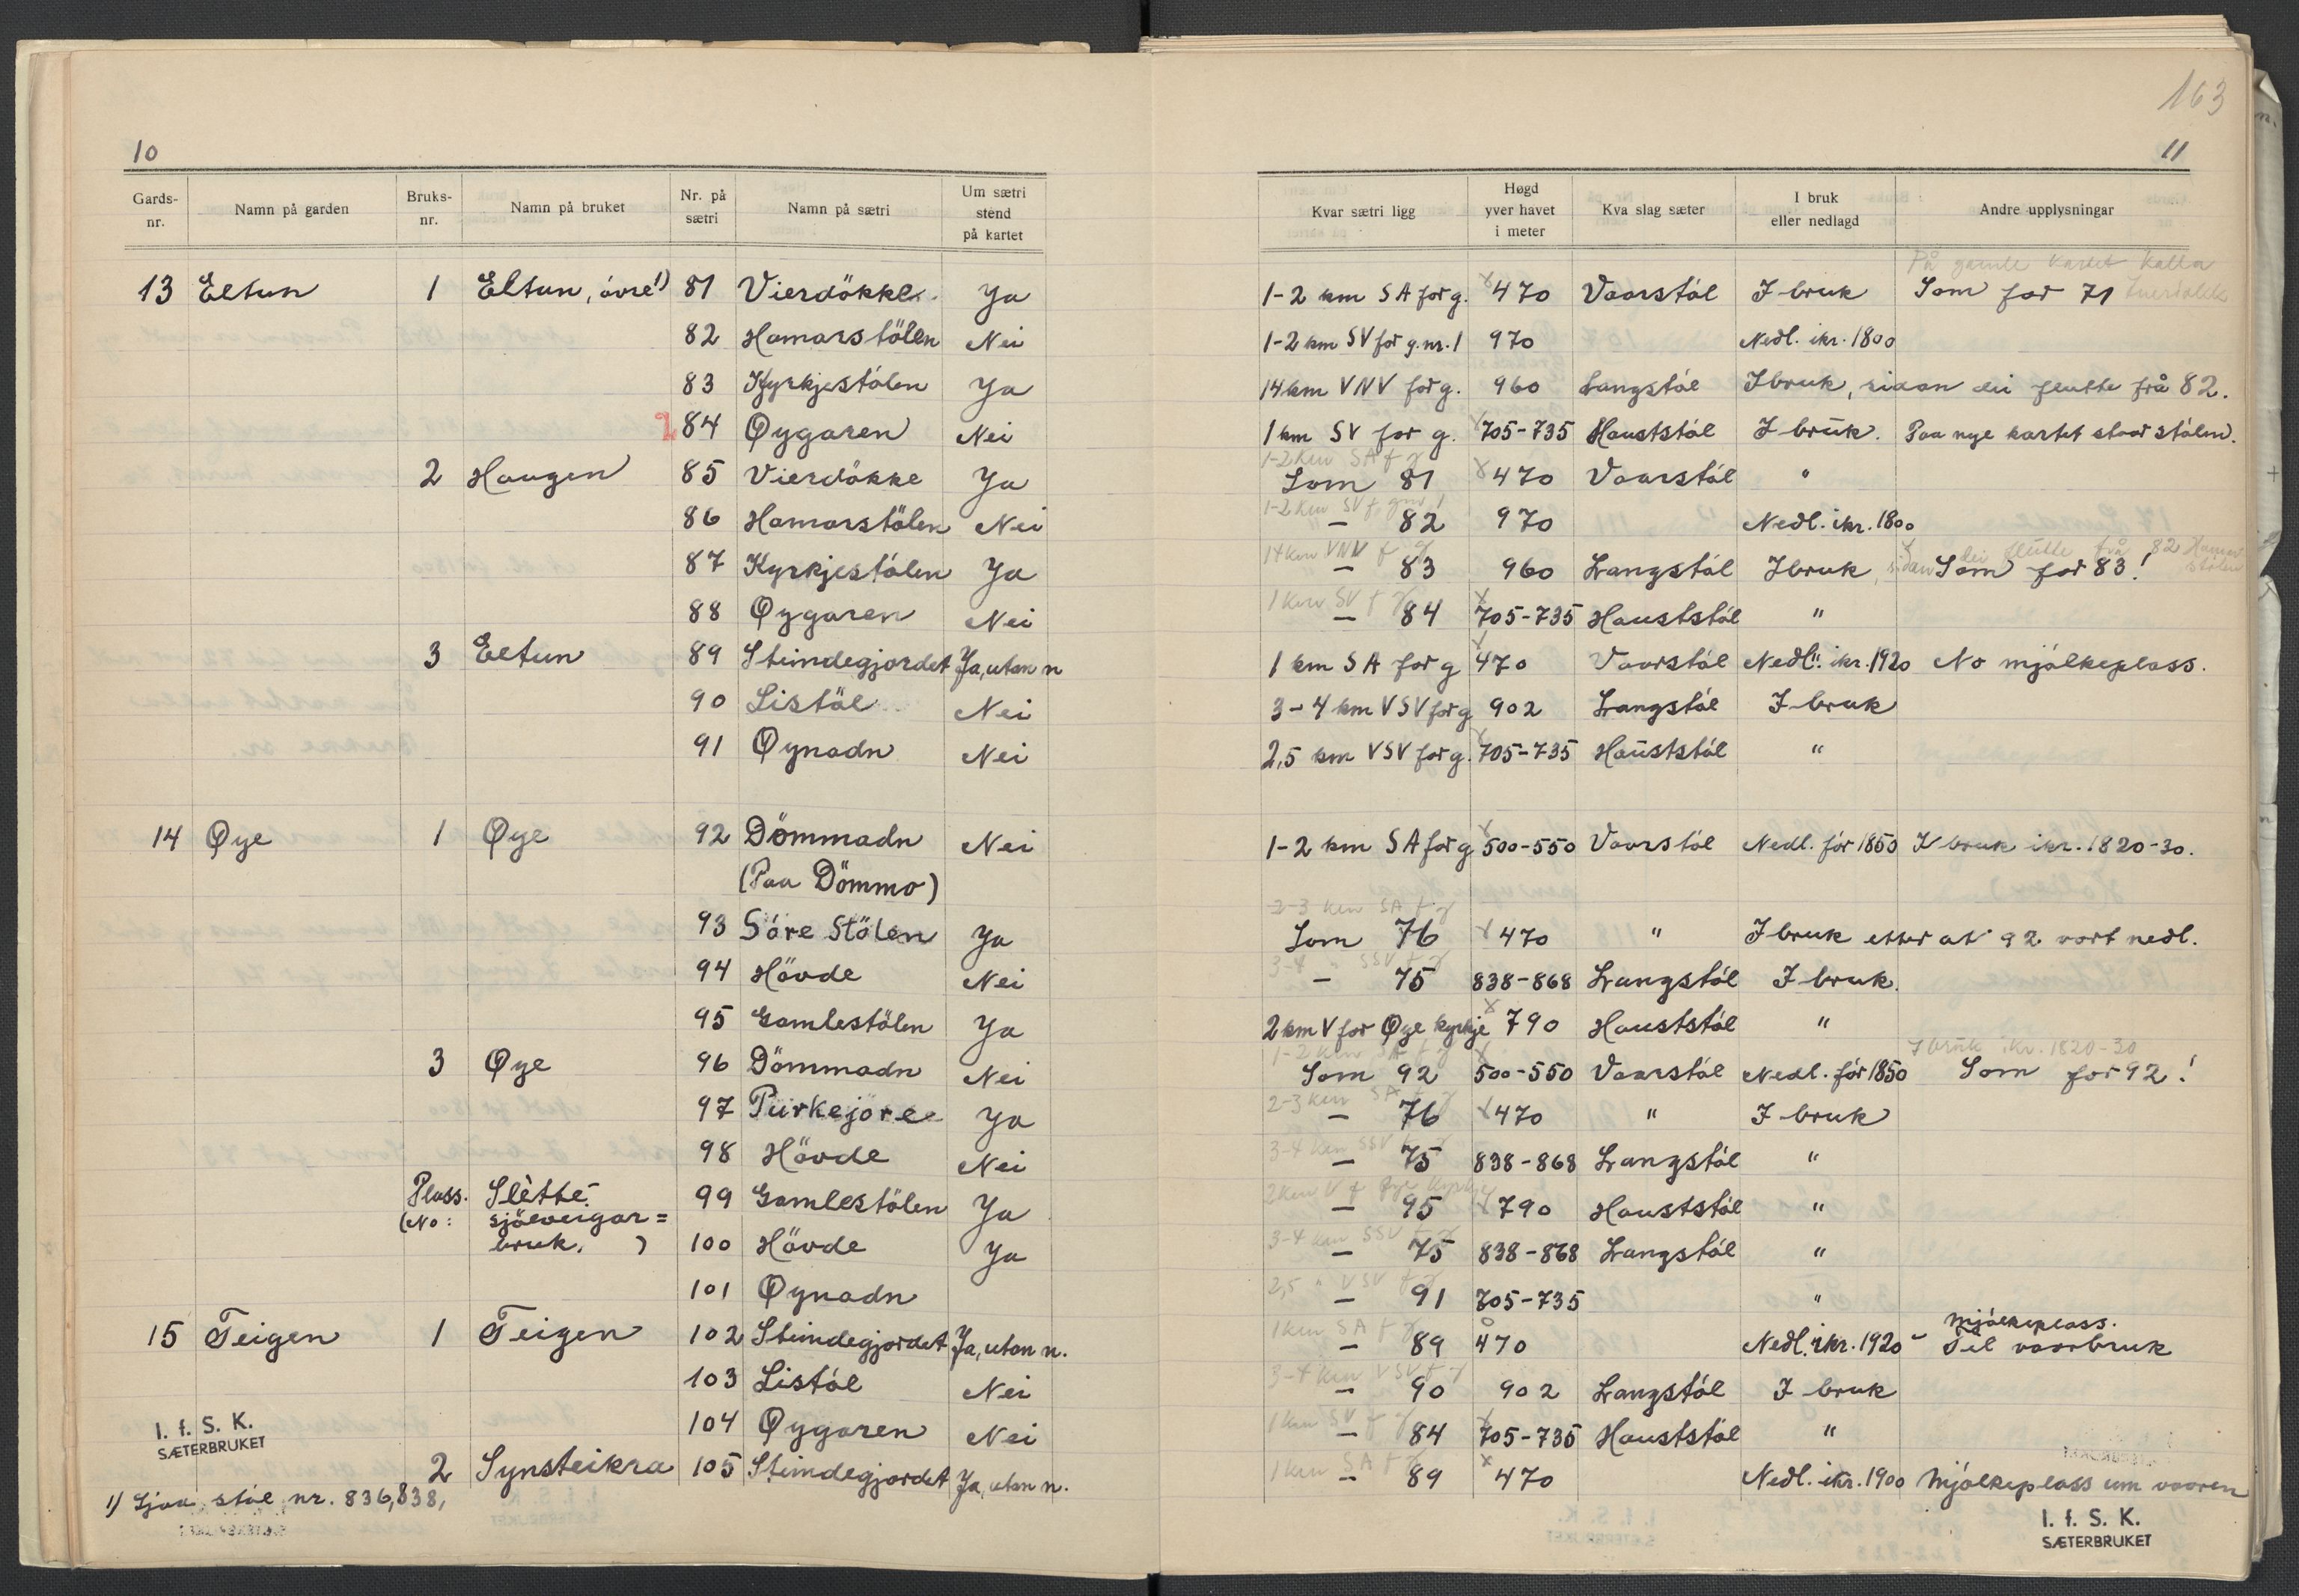 163
10
11
Gards-nr. Namn på garden Bruks-nr. Namn på bruket Nr. på sætri Namn på sætri Um sætri stend på kartet
Kvar sætri ligg Høgd yver havet i meter Kva slag sæter I bruk eller nedlagd Andre upplysningar
På gamle kartet kalla
13 Eltun 1 Eltun, övre 1) 81 Vierdökke Ja 1-2 km SA for g. x 470 Vaarstöl I bruk Som for 71
82 Hamarstölen Nei 1-2 km SV for g.nr. 1 970 Nedl. ikr. 1800
83 Kyrkjestölen Ja 14 km VNV for g. 960 Langstöl I bruk, sidan dei flutte frå 82.
2 84 Øygaren Nei 1 km SV for g. x 705-735 Hauststöl I bruk. Paa nye kartet staar stölen.
1-2 km SA f g
2 Haugen 85 Vierdökke Ja Som 81 x 470 Vaarstöl "
1-2 km SV f gnr 1
86 Hamarstölen Nei — 82 970 Nedl. ikr. 1800
14 km VNV f g
sidan dei flutte frå 82 Hamarstölen
87 Kyrkjestölen Ja — 83 960 Langstöl I bruk, Som for 83!
1 km SV f g
88 Øygaren Nei — 84 x 705-735 Hauststöl "
3 Eltun 89 Stimdegjordet Ja, utan n 1 km SA for g x 470 Vaarstöl Nedl. ikr. 1920 No mjölkeplass.
90 Listöl Nei 3-4 km VSV for g 902 Langstöl I bruk
91 Øynadn Nei 2,5 km VSV for g. x 705-735 Hauststöl "
14 Øye 1 Øye 92 Dömmadn Nei 1-2 km SA for g x 500-550 Vaarstöl Nedl. för 1850 I bruk ikr. 1820-30.
(Paa Dömmo)
2-3 km SA f g
93 Söre Stölen Ja Som 76 x 470 " I bruk etter at 92 vart nedl.
3-4 " SSV f g
94 Hövde Nei — 75 838-868 Langstöl I bruk.
95 Gamlestölen Ja 2 km V for Øye kyrkje x 790 Hauststöl "
1-2 km SA f g I bruk ikr. 1820-30
3 Øye 96 Dömmadn Nei Som 92 x 500-550 Vaarstöl Nedl. för 1850 Som for 92!
2-3 km SA f g
97 Purkejöre Ja — 76 x 470 " I bruk
3-4 km SSV f g
98 Hövde Nei — 75 838-868 Langstöl "
2 km V f Øye kyrkje
Plass. Slette- 99 Gamlestölen Ja — 95 x 790 Hauststöl "
(No: sjölveigar=
3-4 km SSV f g
bruk. ) 100 Hövde Ja — 75 838-868 Langstöl "
2,5 " VSV f g
101 Øynadn — 91 705-735 "
1 km SA f g mjölkeplass.
15 Teigen 1 Teigen 102 Stimdegjordet Ja, utan n. — 89 470 Nedl. ikr. 1920 - Til vaarbruk
3-4 km VSV f g
103 Listöl Nei — 90 902 Langstöl I bruk
1 km SV f g
104 Øygaren Nei — 84 x 705-735 Hauststöl "
1 km SA f g
2 Synsteikra 105 Stimdegjordet Ja, utan n. — 89 x 470 Nedl. ikr. 1900 Mjölkeplass um vaaren
I. f. S. K.
SÆTERBRUKET
1) Sjaa stöl nr. 836, 838,
I. f. S. K.
SÆTERBRUKET